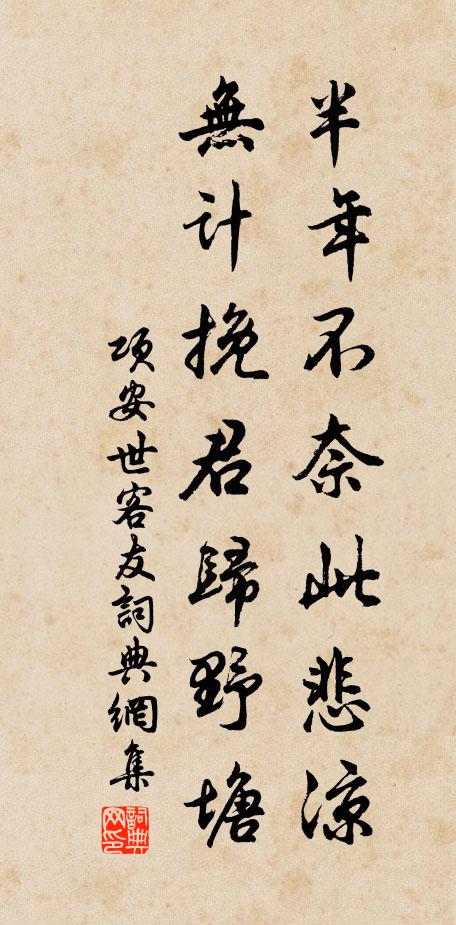 半年不奈此悲涼
無計挽君歸野塘
項安世客友詞典網集
詞典網印